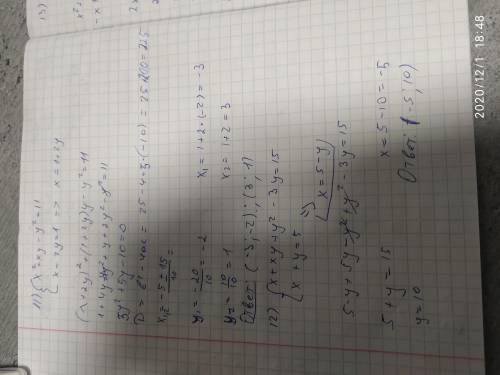 13)
11) { x²+xy-y²=11
x-2y=1 => x=1+2y
(1+2y)²+(1+2y)y-y²=11
1+4y+4y²+y+2y²-y²=11
5y²+5y-10=0
D = b²-4ac = 25-4·5·(-10)=25+200=225
x₁,₂= -5±15/10 =
y₁= -20/10 = -2 x₁=1+2·(-2)=-3
y₂= 10/10 = 1 x₂=1+2=3
Ответ: (-3;-2); (3;1)
12) { x+xy+y²-3y=15
x+y=5 => x=5-y
5-y+5y-y²+y²-3y=15
5+y=15
y=10 x=5-10=-5
Ответ: (-5;10)
2020/12/1 18:48